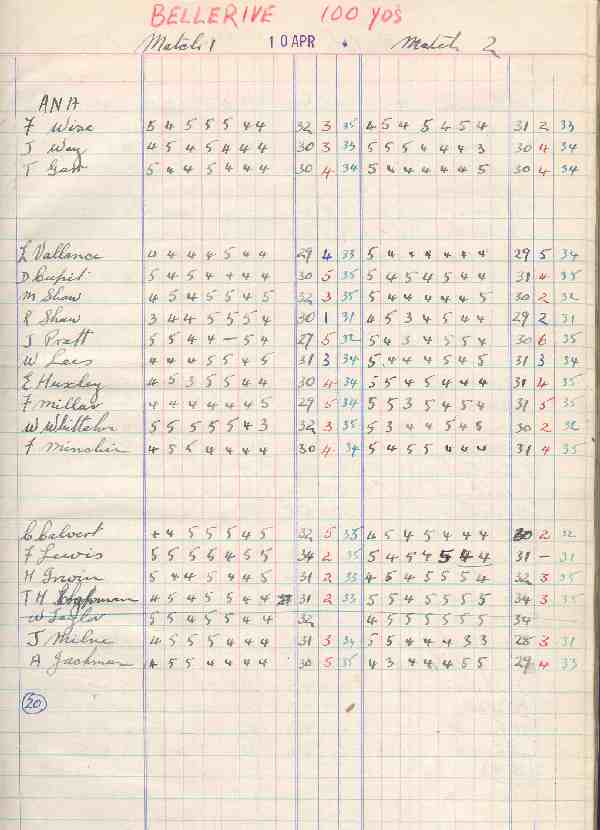 BELLERIVE 100 YDS
Match 1 10 APR Match 2
ANA
F Wise 5 4 5 5 5 4 4 32 3 35 4 5 4 5 4 5 4 31 2 33
J Way 4 5 4 5 4 4 4 30 3 33 5 5 5 4 4 4 3 30 4 34
T Garr 5 4 4 5 4 4 4 30 4 34 5 4 4 4 4 4 5 30 4 34
L Vallance 4 4 4 4 5 4 4 29 4 33 5 4 4 4 4 4 4 29 5 34
D Cupit 5 4 5 4 4 4 4 30 5 35 5 4 5 4 5 4 4 31 4 35
M Shaw 4 5 4 5 5 4 5 32 3 35 5 4 4 4 4 4 5 30 2 32
R Shaw 3 4 4 5 5 5 4 30 1 31 4 5 3 4 5 4 4 29 2 31
J Pratt 5 5 4 4 - 5 4 27 5 32 5 4 3 4 5 5 4 30 6 35
W Lees 4 4 4 5 5 4 5 31 3 34 5 4 4 4 5 4 5 31 3 34
E Huxley 4 5 3 5 5 4 4 30 4 34 5 5 4 5 4 4 4 31 4 35
F Millar 4 4 4 4 4 4 5 29 5 34 5 5 3 5 4 5 4 31 5 35
W Whitton 5 5 5 5 5 4 3 32 3 35 5 3 4 4 5 4 5 30 2 32
F Minchin 4 5 5 4 4 4 4 30 4 34 5 4 5 5 4 4 4 31 4 35
C Calvert 4 4 5 5 5 4 5 32 5 35 4 5 4 5 4 4 4 30 2 32
F Lewis 5 5 5 5 4 5 5 34 2 35 5 4 5 4 5 4 4 31 - 31
H Irwin 5 4 4 5 4 4 5 31 2 33 4 5 4 5 5 5 4 32 3 35
T H 4 5 4 5 5 4 4 31 2 33 5 5 4 5 5 5 5 34 3 35
W Taylor 5 5 4 5 5 4 4 32 4 5 5 5 5 5 5 34
J Milne 4 5 5 5 4 4 4 31 3 34 5 5 4 4 4 3 3 28 3 31
A Jackman 4 5 5 4 4 4 4 30 5 35 4 3 4 4 4 5 5 29 4 33
20